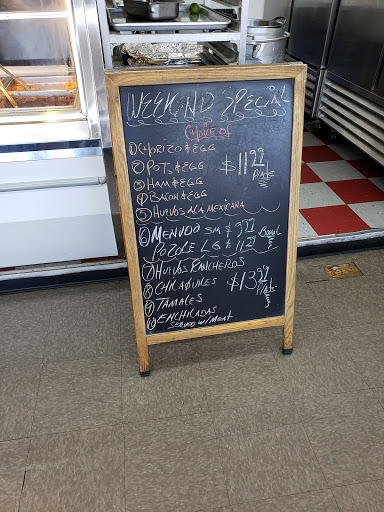 WEEKEND SPECIAL
CHOICE OF
① CHORIZO & EGG
② POT & EGG
③ HAM & EGG
④ BACON & EGG
⑤ HUEVOS A LA MEXICANA
$11.99 PLATE
⑥ MENUDO SM $9.99 BOWL
POZOLE LG $11.29
⑦ HUEVOS RANCHEROS
⑧ CHILAQUILES
⑨ TAMALES
⑩ ENCHILADAS
SERVED W/ MEAT
$13.99 PLATE